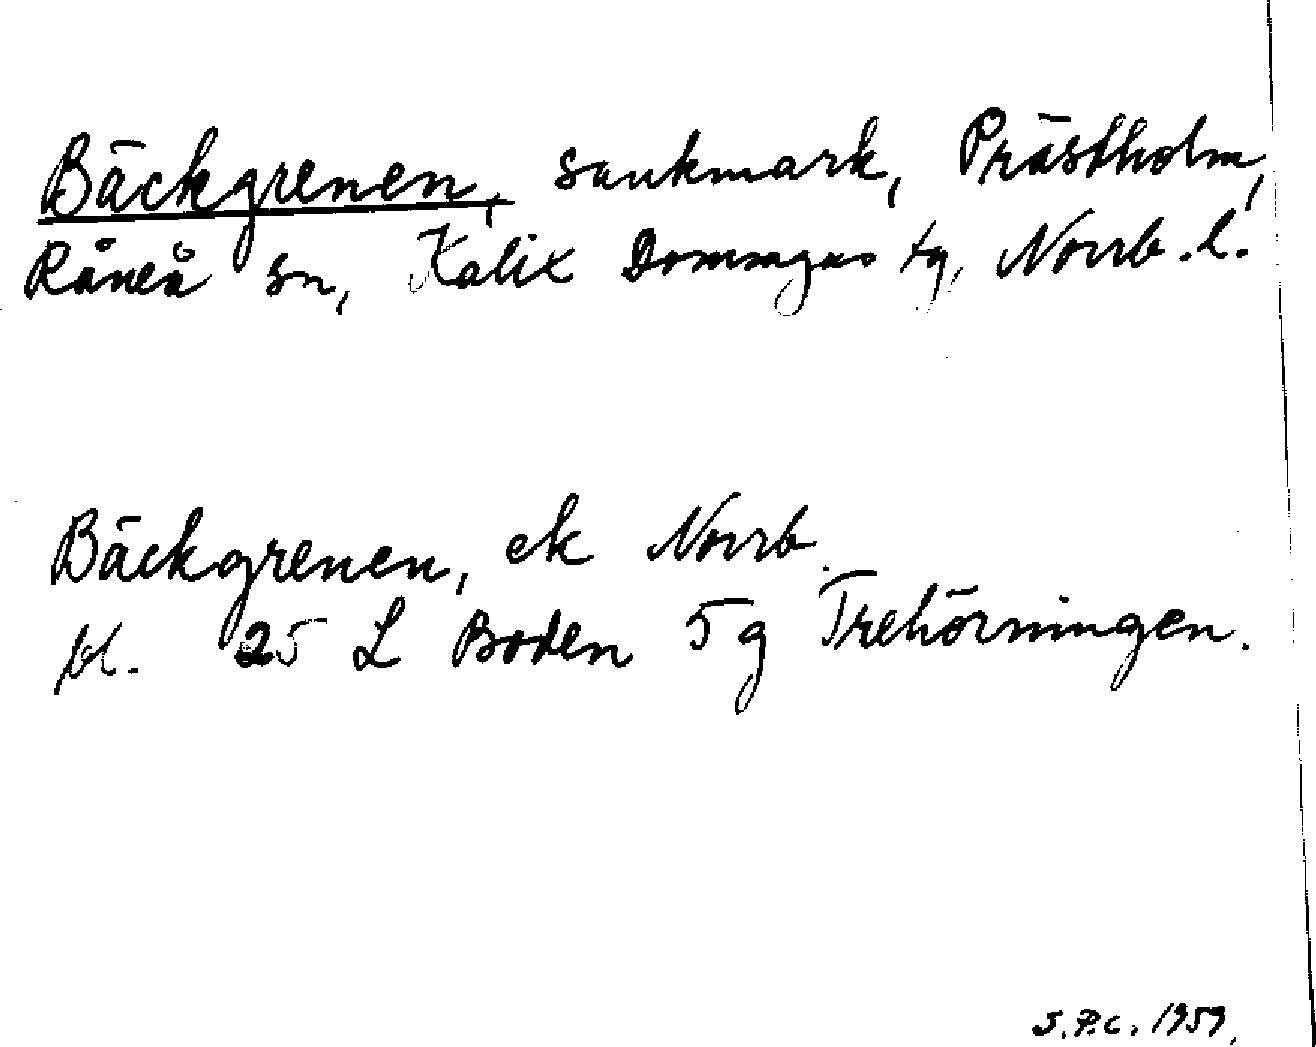 Bäckgrenen, sankmark, Prästholm,
Råneå sn, Kalix Domsagas tg, Norrb. l.
Bäckgrenen, ek Norrb.
bl. 25 L Boden 5 g Trehörningen.
S.P.C. 1959.